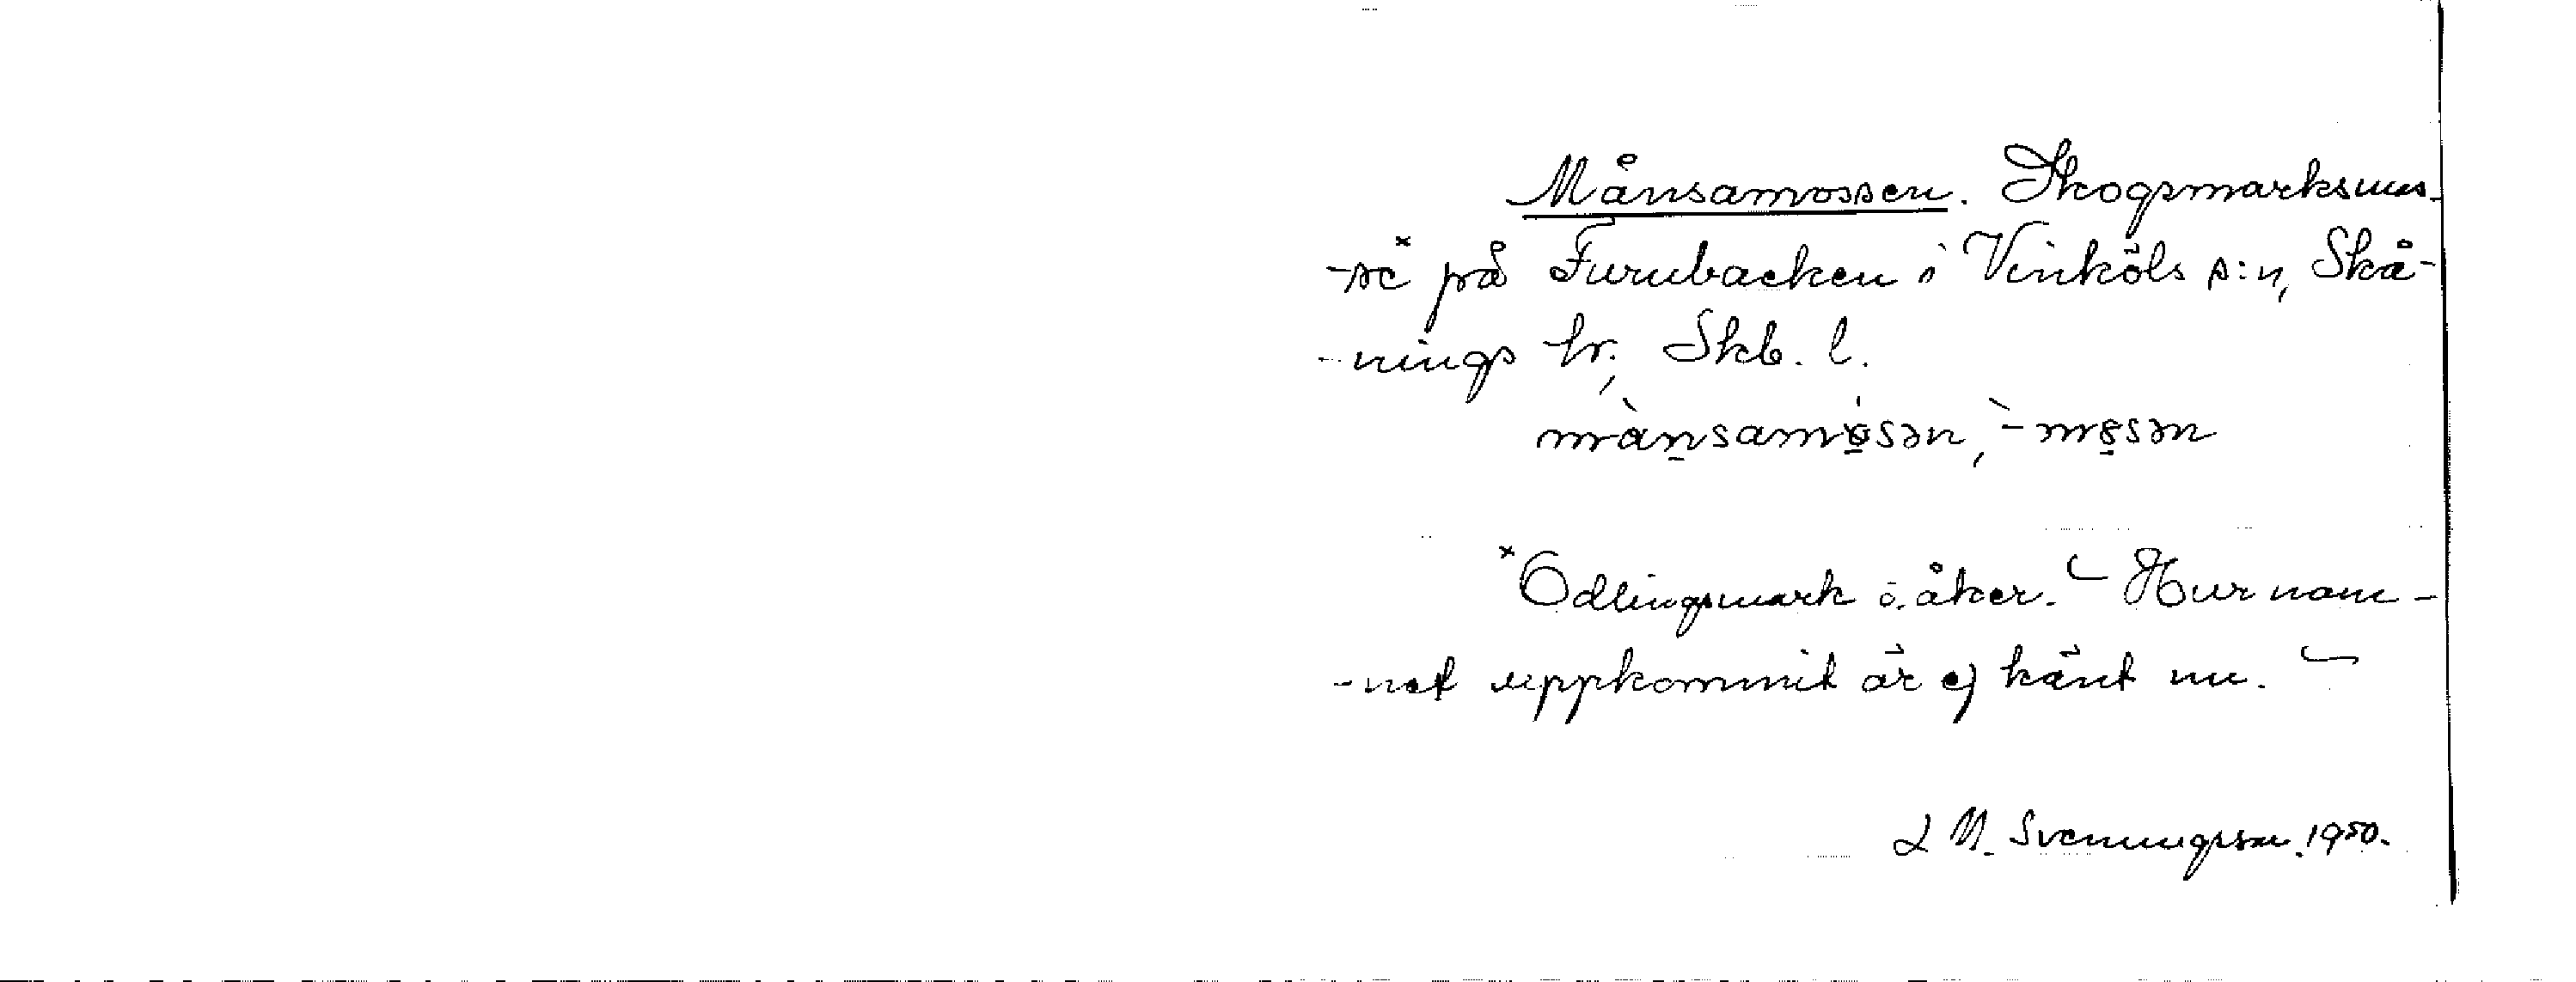 Månsamossen. Skogsmarksmos-
-se× på Furubacken i Vinköls s:n, Skå-
-nings hr., Skb. l.
mànsamósən, `-møsən
×Odlingsmark o. åker. ~ Hur nam-
-net uppkommit är ej känt nu. ~
L M. Svenningsson. 1950.